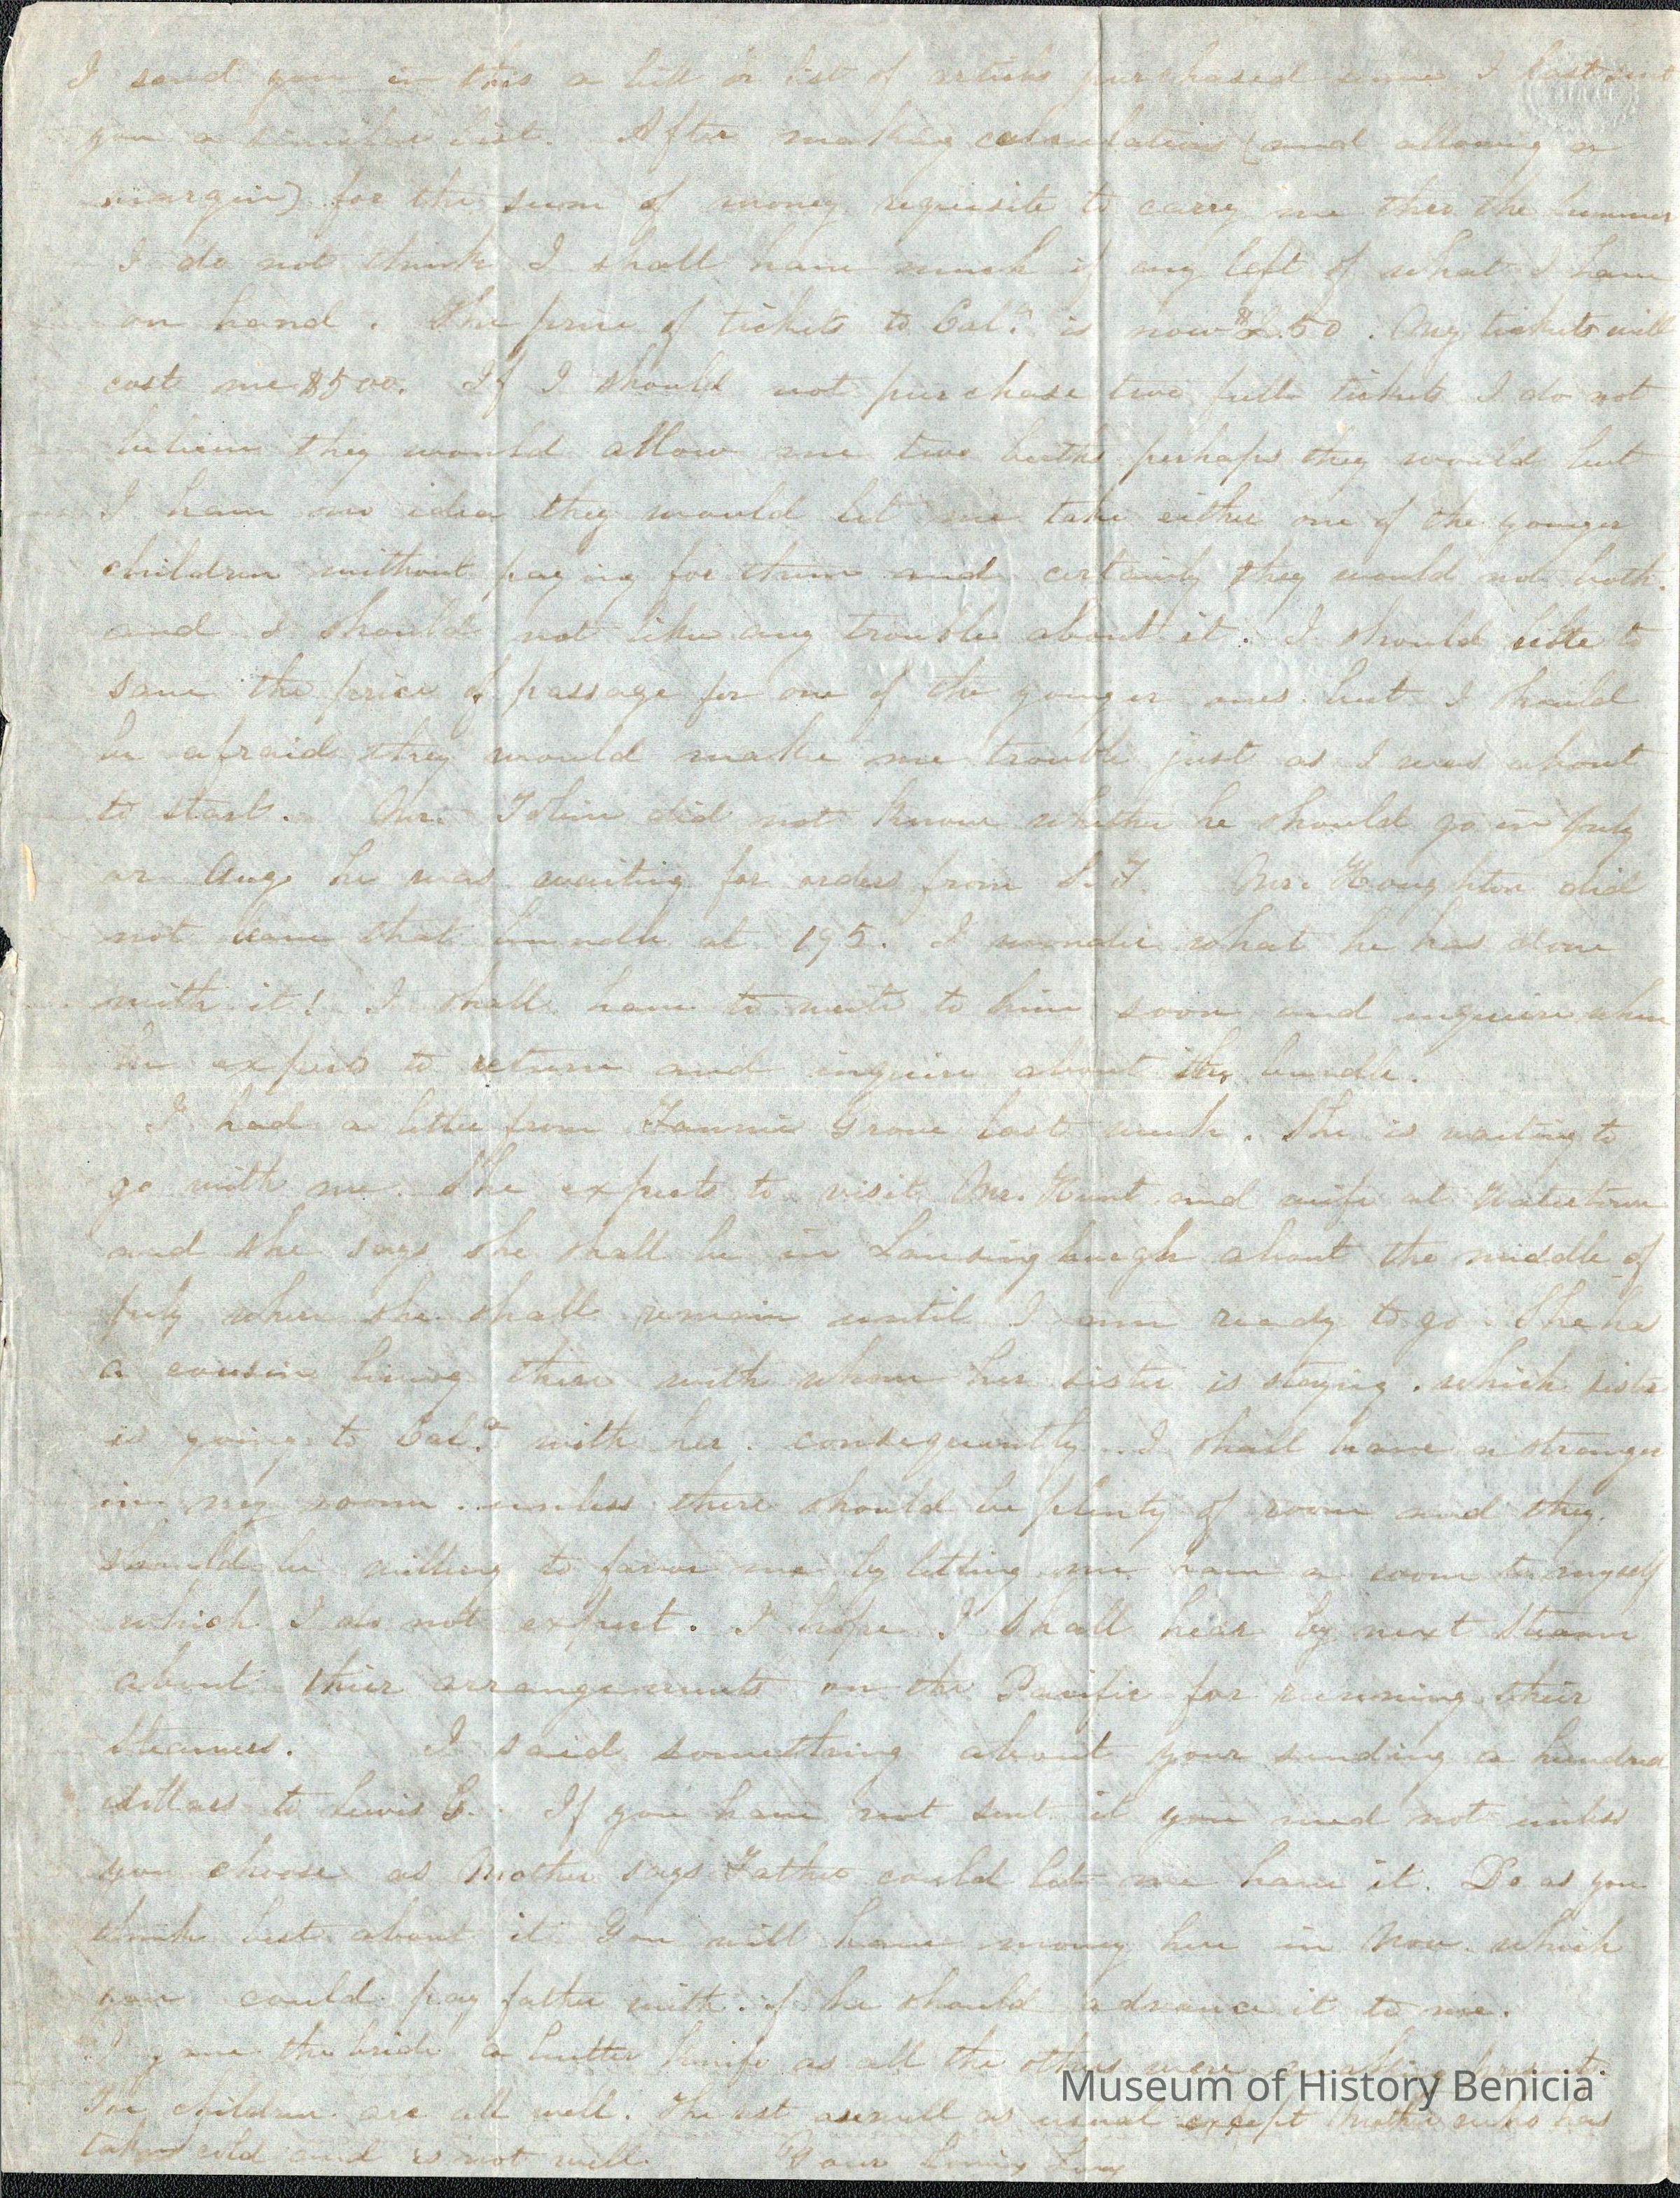 I send you in this a bill or list of articles purchased since I last sent
you a similar list. After making calculations (and allowing a
margin) for the sum of money requisite to carry me thro the summer
I do not think I shall have much if any left of what I have
on hand. The price of tickets to Cal.ª is now $2.50. My tickets will
cost me $500. If I should not purchase two full tickets I do not
believe they would allow me two berths perhaps they would but
I have no idea they would let me take either one of the younger
children without paying for them and certainly they would not both.
and I should not like any trouble about it. I should like to
save the price of passage for one of the younger ones but I should
be afraid they would make me trouble just as I was about
to start. Mr. did not know whether he should go in July
or Aug he was waiting for orders from S.F. Mr. Houghton did
not leave that bundle at 195. I wonder what he has done
with it! I shall have to write to him soon and inquire when
he expects to return and inquire about the bundle.
I had a letter from Fannie Grove last week. She is waiting to
go with me. She expects to visit Mr. Hunt and wife at Watertown
and she says she shall be in Lansingburgh about the middle of
July where she shall remain until I am ready to go. She has
a cousin living there with whom her sister is staying. which sister
is going to Cal.ª with her. consequently I shall have a stranger
in my room. unless there should be plenty of room and they
should be willing to favor me by letting me have a room to myself
which I do not expect. I hope I shall hear by next Steamer
about their arrangements on the Pacific for running their
Steamers. I said something about your sending a hundred
dollars to Lewis G. If you have not sent it you need not unless
you choose as Mother says Father could let me have it. Do as you
think best about it. You will have money here in Nov. which
you could pay father with. if he should advance it to me.
I gave the bride a butter knife as all the others were making presents.
The children are all well. The rest as well as usual except Mother who has
taken cold and is not well. Your loving Lucy
Museum of History Benicia